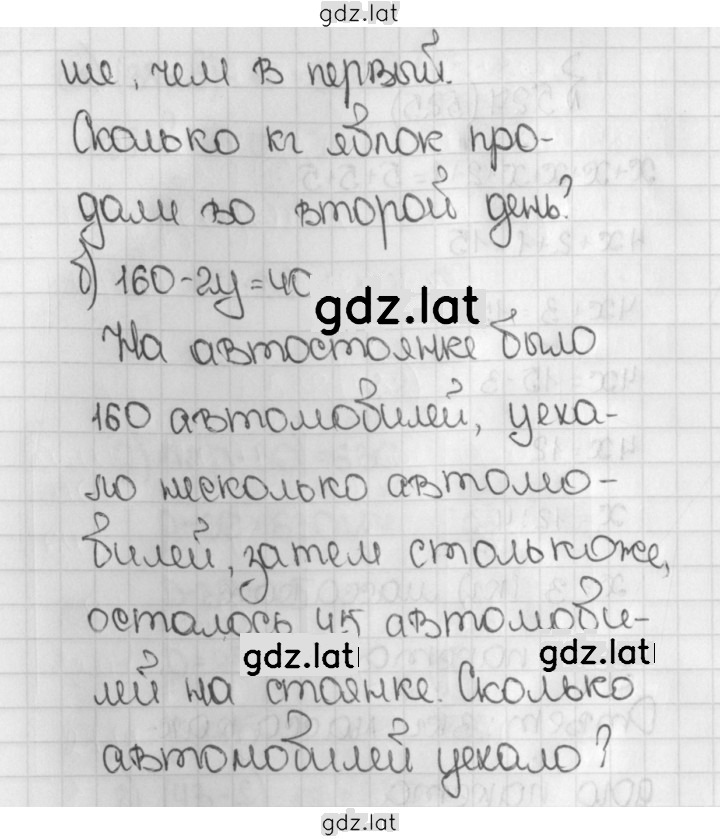 gdz.lat
ше, чем в первый.
Сколько кг яблок про-
дали во второй день?
б) 160-2y=40
gdz.lat
На автостоянке было
160 автомобилей, уеха-
ло несколько автомо-
билей, затем столькоже,
осталось 45 автомоби-
gdz.lat
gdz.lat
лей на стоянке. Сколько
автомобилей уехало?
gdz.lat